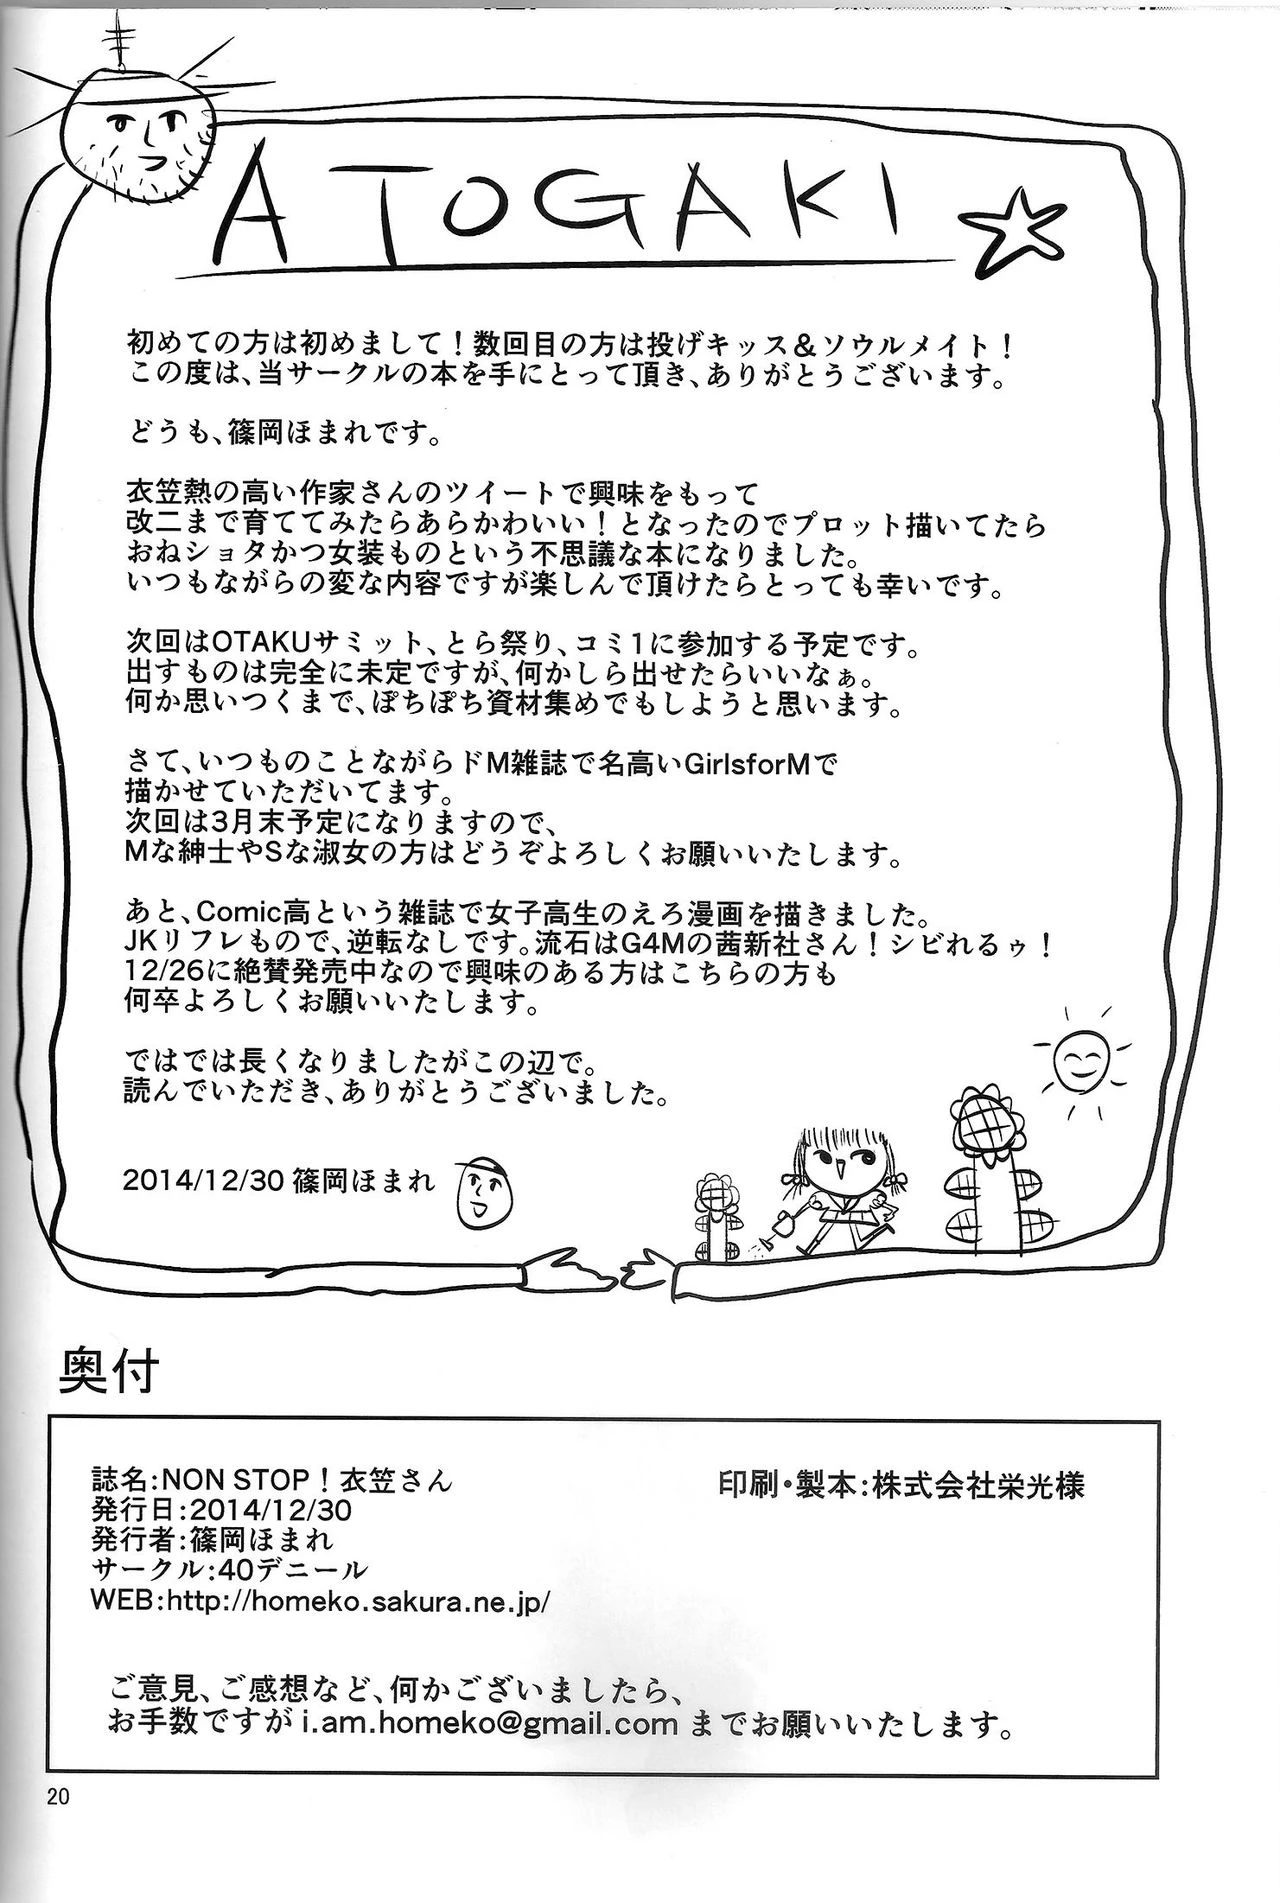 ATOGAKI
初めての方は初めまして！数回目の方は投げキッス＆ソウルメイト！
この度は、当サークルの本を手にとって頂き、ありがとうございます。
どうも、篠岡ほまれです。
衣笠熱の高い作家さんのツイートで興味をもって
改二まで育ててみたらあらかわいい！となったのでプロット描いてたら
おねショタかつ女装ものという不思議な本になりました。
いつもながらの変な内容ですが楽しんで頂けたらとっても幸いです。
次回はOTAKUサミット、とら祭り、コミ1に参加する予定です。
出すものは完全に未定ですが、何かしら出せたらいいなぁ。
何か思いつくまで、ぽちぽち資材集めでもしようと思います。
さて、いつものことながらドM雑誌で名高いGirlsforMで
描かせていただいてます。
次回は3月末予定になりますので、
Mな紳士やSな淑女の方はどうぞよろしくお願いいたします。
あと、Comic高という雑誌で女子高生のえろ漫画を描きました。
JKリフレもので、逆転なしです。流石はG4Mの茜新社さん！シビれるゥ！
12/26に絶賛発売中なので興味のある方はこちらの方も
何卒よろしくお願いいたします。
ではでは長くなりましたがこの辺で。
読んでいただき、ありがとうございました。
2014/12/30 篠岡ほまれ
奥付
誌名：NON STOP！衣笠さん
発行日：2014/12/30
発行者：篠岡ほまれ
サークル：40デニール
WEB：http://homeko.sakura.ne.jp/
印刷・製本：株式会社栄光様
ご意見、ご感想など、何かございましたら、
お手数ですが i.am.homeko@gmail.com までお願いいたします。
20